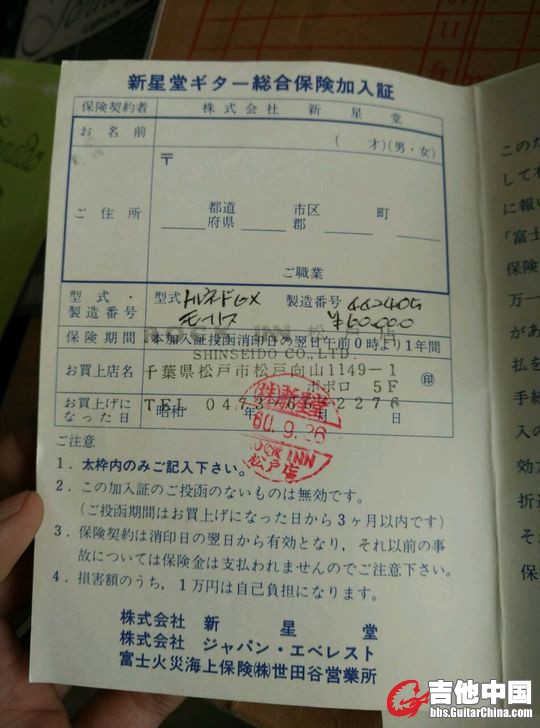 新星堂ギター総合保険加入証
保険契約者 株式会社 新星堂
お名前
( 才)(男・女)
〒
ご住所
都道 市区 町
府県 郡
ご職業
型式・ 型式 トルネードGX 製造番号
製造番号 モーリス ¥60,000
ROCK INN 松戸店
保険期間 本加入証投函消印日の翌日午前0時より1年間
SHINSEIDO CO.,LTD.
お買上店名 千葉県松戸市松戸向山1149-1
ポポロ 5F 印
お買上げに 昭和 年 月 日
なった日
TEL 0473 2276
㈱新星堂
60.9.26
ROCK INN
松戸店
ご注意
1．太枠内のみご記入下さい。
2．この加入証のご投函のないものは無効です。
（ご投函期間はお買上げになった日から3ヶ月以内です）
3．保険契約は消印日の翌日から有効となり，それ以前の事
故については保険金は支払われませんのでご注意下さい。
4．損害額のうち，1万円は自己負担になります。
株式会社 新星堂
株式会社 ジャパン・エベレスト
富士火災海上保険㈱世田谷営業所
このた
して
に報い
「富士
保険
万一
があ
払を
手続
入の
効力
折返
それ
保
吉他中国
bbs.GuitarChina.com